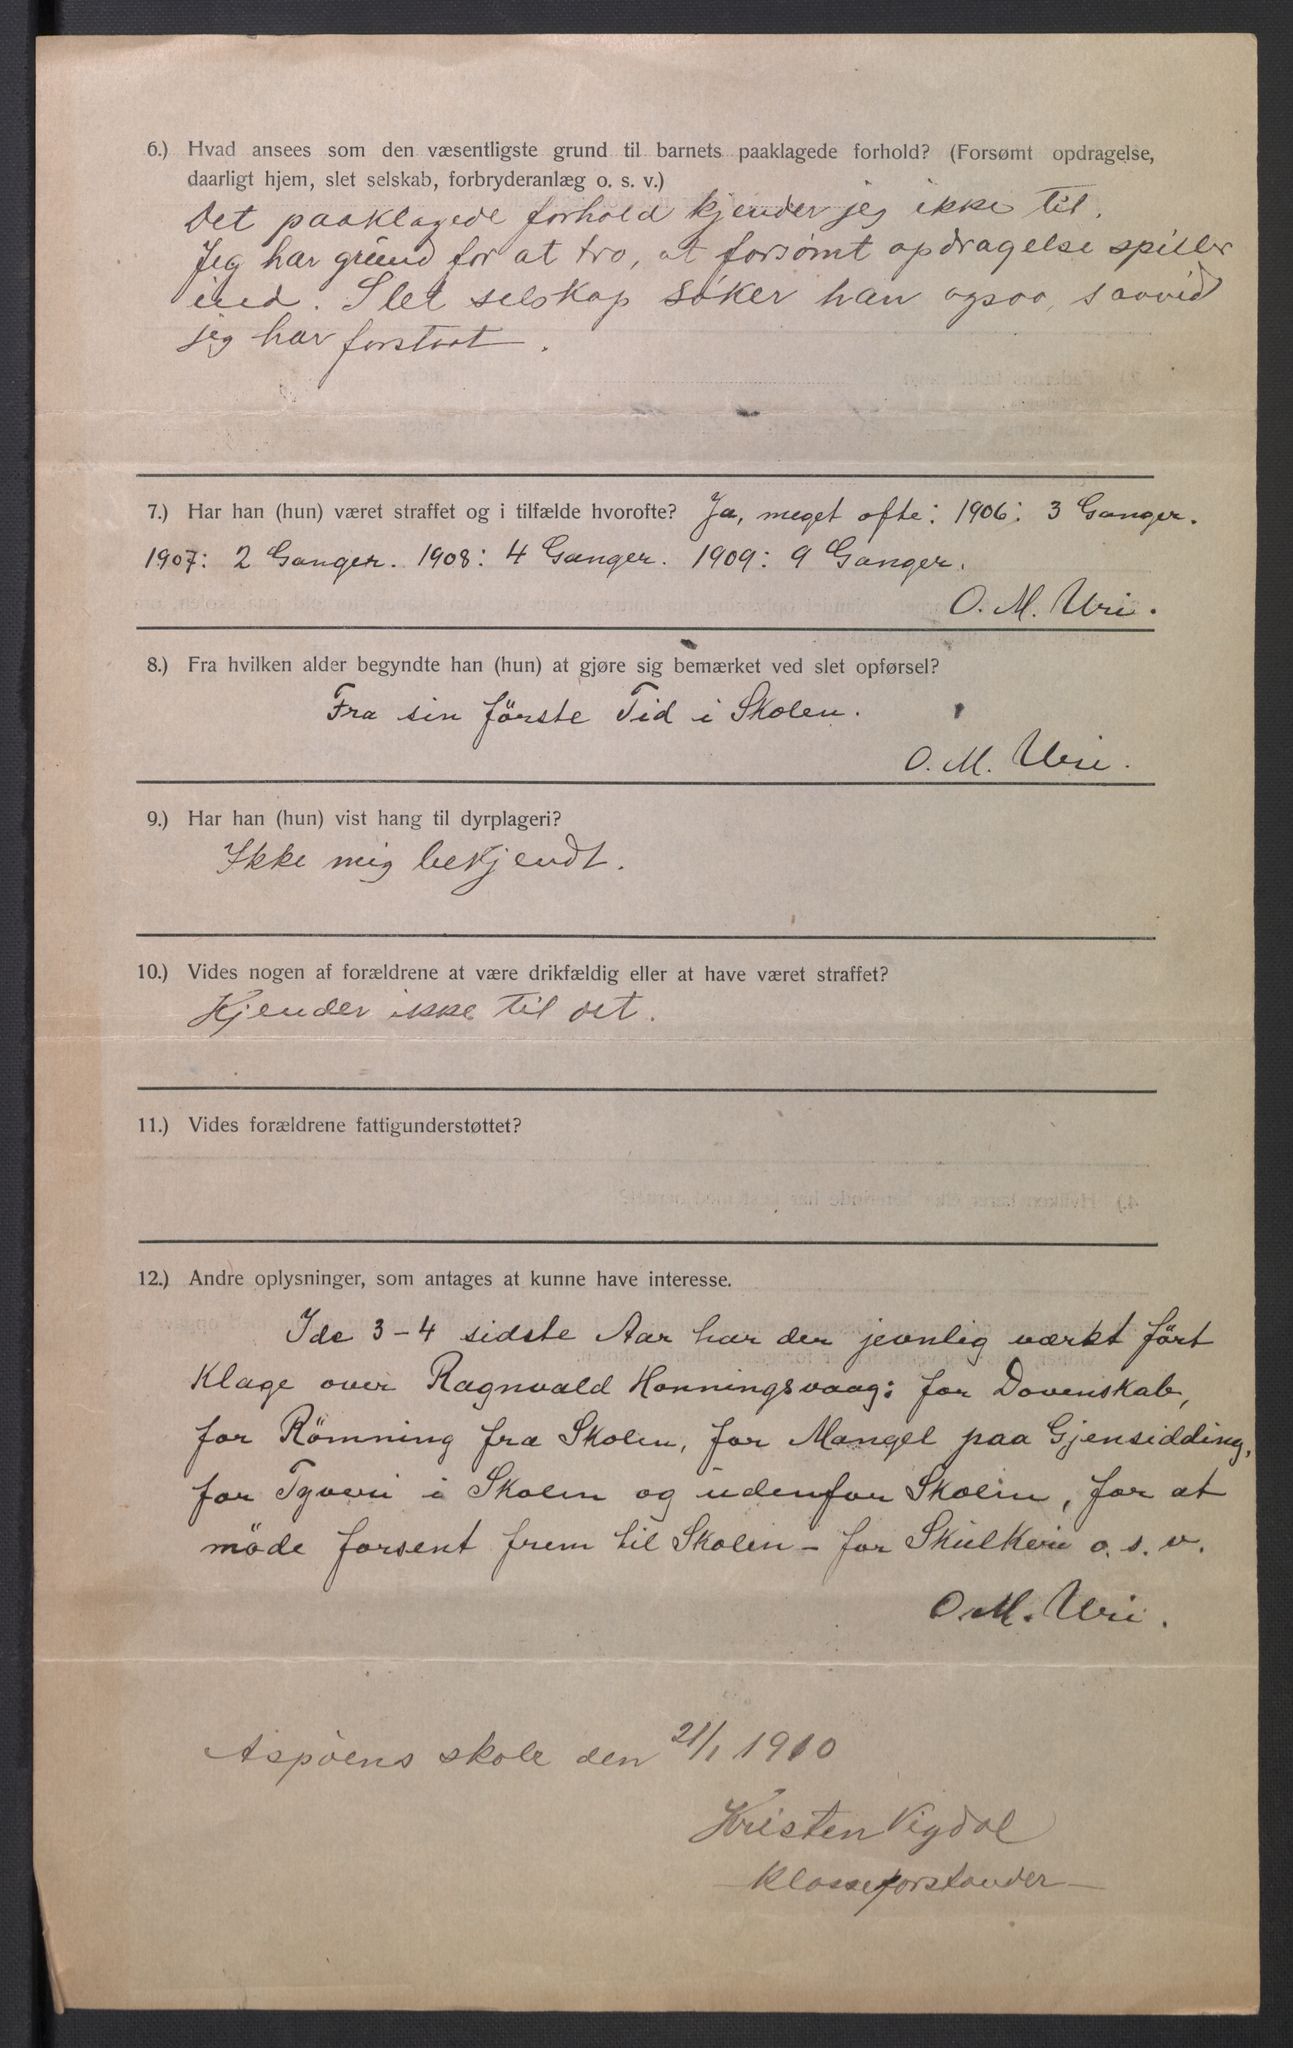 6.) Hvad ansees som den væsentligste grund til barnets paaklagede forhold? (Forsømt opdragelse,
daarligt hjem, slet selskab, forbryderanlæg o. s. v.)
Det paaklagede forhold kjender jeg ikke til.
Jeg har grund for at tro, at forsømt opdragelse spiller
ind. Slet selskap søker han ogsaa, saavid
jeg har forstaat.
7.) Har han (hun) været straffet og i tilfælde hvorofte? Ja, meget ofte: 1906: 3 Ganger.
1907: 2 Ganger. 1908: 4 Ganger. 1909: 9 Ganger.
O. M. Uri.
8.) Fra hvilken alder begyndte han (hun) at gjøre sig bemærket ved slet opførsel?
Fra sin förste Tid i Skolen.
O. M. Uri.
9.) Har han (hun) vist hang til dyrplageri?
Ikke mig bekjendt.
10.) Vides nogen af forældrene at være drikfældig eller at have været straffet?
Kjender ikke til det.
11.) Vides forældrene fattigunderstøttet?
12.) Andre oplysninger, som antages at kunne have interesse.
I de 3-4 sidste Aar har der jevnlig værkt fört
Klage over Ragnvald Honningsvaag: for Dovenskab,
for Römning fra Skolen, for Mangel paa Gjensidding,
for Tyveri i Skolen og udenfor Skolen, for at
möde forsent frem til Skolen - for Skulkeri o. s. v.
O. M. Uri.
Aspöens skole den 21/1 1910
Kristen Vigdal
Klasseforstander